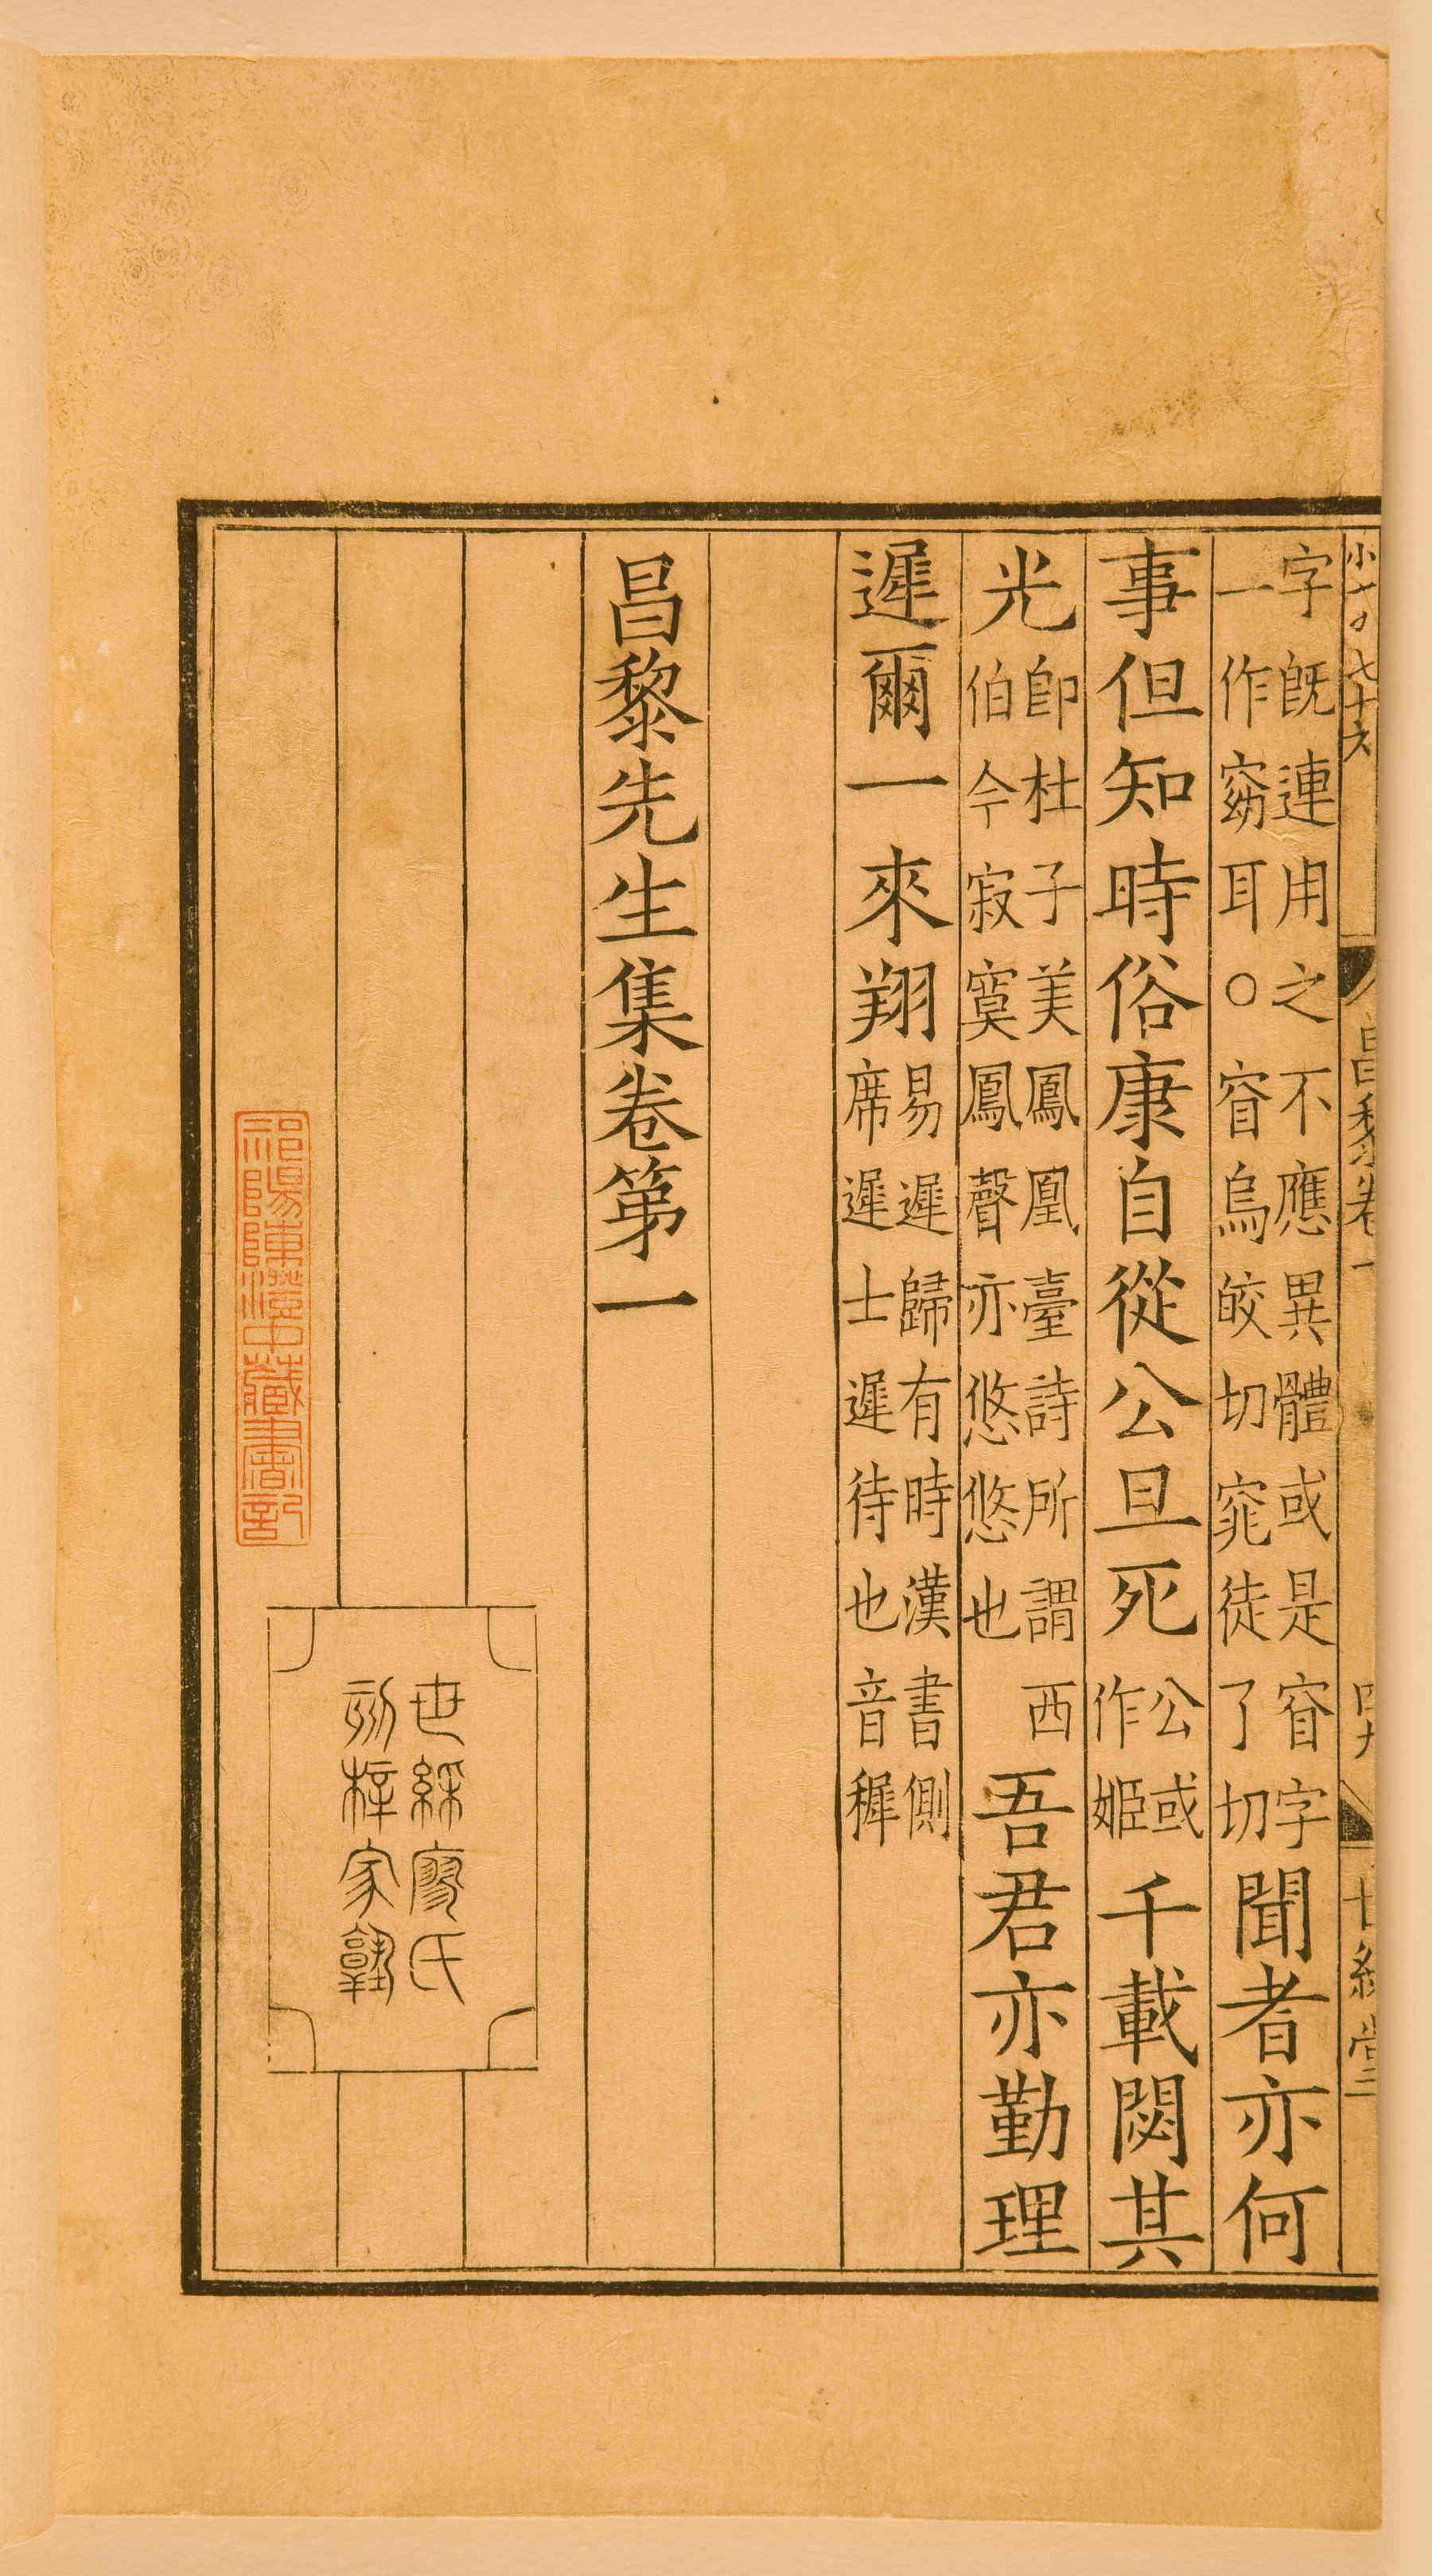 小七百七十六
昌黎卷一
世綵堂
字旣連用之不應異體或是窅字
一作窈耳○窅烏皎切窕徒了切
聞者亦何
事但知時俗康自從公旦死
公或
作姬
千載閟其
光
卽杜子美鳳凰臺詩所謂西
伯今寂寞鳳聲亦悠悠也
吾君亦勤理
遲爾一來翔
易遲歸有時漢書側
席遲士遲待也音穉
昌黎先生集卷第一
世綵廖氏
刻梓家塾
祁陽陳澄中藏書記